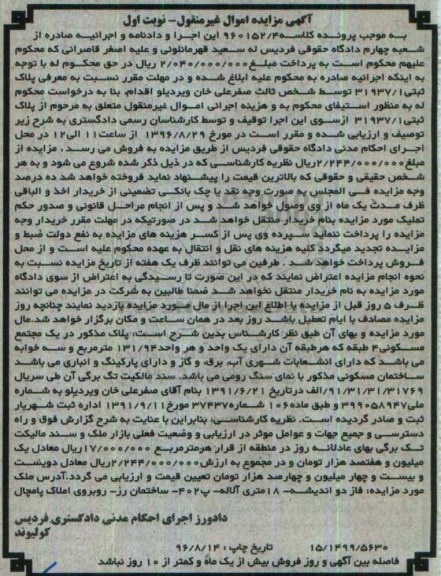 آگهی مزایده اموال غیرمنقول- نوبت اول
به موجب پرونده کلاسه۹۶۰۱۵۲/۴ این اجرا و دادنامه و اجرائیه صادره از
شعبه چهارم دادگاه حقوقی فردیس له سعید قهرمانلوئی و علیه اصغر قاصرانی که محکوم
علیهم محکوم است به پرداخت مبلغ۲/۰۴۰/۰۰۰/۰۰۰ ریال در حق محکوم له با توجه
به اینکه اجرائیه صادره به محکوم علیه ابلاغ شده و در مهلت مقرر نسبت به معرفی پلاک
ثبتی۳۱۹۳۷/۱ توسط شخص ثالث صفرعلی خان ویردیلو اقدام، بنا به درخواست محکوم
له به منظور استیفای محکوم به و هزینه اجرائی اموال غیرمنقول متعلق به مرحوم از پلاک
ثبتی۳۱۹۳۷/۱ ازسوی این اجرا توقیف و توسط کارشناسان رسمی دادگستری به شرح زیر
توصیف و ارزیابی شده و مقرر است در مورخ ۱۳۹۶/۸/۲۹ از ساعت۱۱ الی۱۲ در محل
اجرای احکام مدنی دادگاه حقوقی فردیس از طریق مزایده به فروش می رسد. مزایده از
مبلغ۲/۲۴۴/۰۰۰/۰۰۰ریال نظریه کارشناسی که در ذیل ذکر شده شروع می شود و به هر
شخص حقیقی و حقوقی که بالاترین قیمت را پیشنهاد نماید فروخته خواهد شد ده درصد
وجه مزایده فی المجلس به صورت وجه نقد یا چک بانکی تضمینی از خریدار اخذ و الباقی
ظرف مدت یک ماه از وی وصول خواهد شد و پس از انجام مراحل قانونی و صدور حکم
تملیک مورد مزایده بنام خریدار منتقل خواهد شد. در صورتیکه در مهلت مقرر خریدار وجه
مزایده را پرداخت ننماید سپرده وی پس از کسر هزینه های مزایده به نفع دولت ضبط و
مزایده تجدید میگردد کلیه هزینه های نقل و انتقال به عهده محکوم علیه است و از محل
فروش پرداخت خواهد شد . طرفین می توانند ظرف یک هفته از تاریخ مزایده نسبت به
نحوه انجام مزایده اعتراض نمایند که در این صورت تا رسیدگی به اعتراض از سوی دادگاه
مورد مزایده به نام خریدار منتقل نخواهد شد ضمنا طالبین به شرکت در مزایده می توانند
ظرف ۵ روز قبل از مزایده با اطلاع این اجرا از مال مورد مزایده بازدید نمایند چنانچه روز
مزایده مصادف با ایام تعطیل باشد روز بعد در همان ساعت و مکان برگزار خواهد شد.مال
مورد مزایده و بهای آن طبق نظر کارشناس بدین شرح است، پلاک مذکور در یک مجتمع
مسکونی۴ طبقه که هرطبقه آن دارای یک واحد و هر واحد۱۳۱/۹۴ مترمربع و سه خوابه
می باشد که دارای انشعابات شهری آب، برق، و گاز و دارای پارکینگ و انباری می باشد
ساختمان مسکونی مذکور با نمای سنگ رومی می باشد. سند مالکیت تک برگی آن طی سریال
۹۱/۳۱/۳۱/۳۱۷۶۹/الف درتاریخ ۱۳۹۱/۶/۲۱ بنام آقای صفرعلی خان ویردیلو به شماره
ملی۳۹۹۰۵۸۹۴۷ و طبق ماده۱۰۶ شماره۳۷۴۳۷ مورخ۱۳۹۱/۹/۱۱ اداره ثبت شهریار
ثبت و صادر گردیده است. نظریه کارشناسی: بنابراین با عنایت به شرح گزارش فوق و راه
دسترسی و جمیع جهات و عوامل موثر در ارزیابی و وضعیت فعلی بازار ملک و سند مالکیت
تک برگی بهای عادلانه روز در منطقه از قرار هرمترمربع ۱۷/۰۰۰/۰۰۰ریال معادل یک
میلیون و هفتصد هزار تومان و در مجموع به ارزش۲/۲۴۴/۰۰۰/۰۰۰ریال معادل دویست
و بیست و چهار میلیون و چهارصد هزار تومان تعیین قیمت و ارزیابی می گردد.آدرس ملک
مورد مزایده: فاز دو اندیشه- ۱۸متری آلاله- پ۴۰۲- ساختمان رز- روبروی املاک پامچال
دادورز اجرای احکام مدنی دادگستری فردیس
کولیوند
۱۵/۱۴۹۹/۵۶۳۰ تاریخ چاپ: ۹۶/۸/۱۴
فاصله بین آگهی و روز فروش بیش از یک ماه و کمتر از ۱۰ روز نباشد